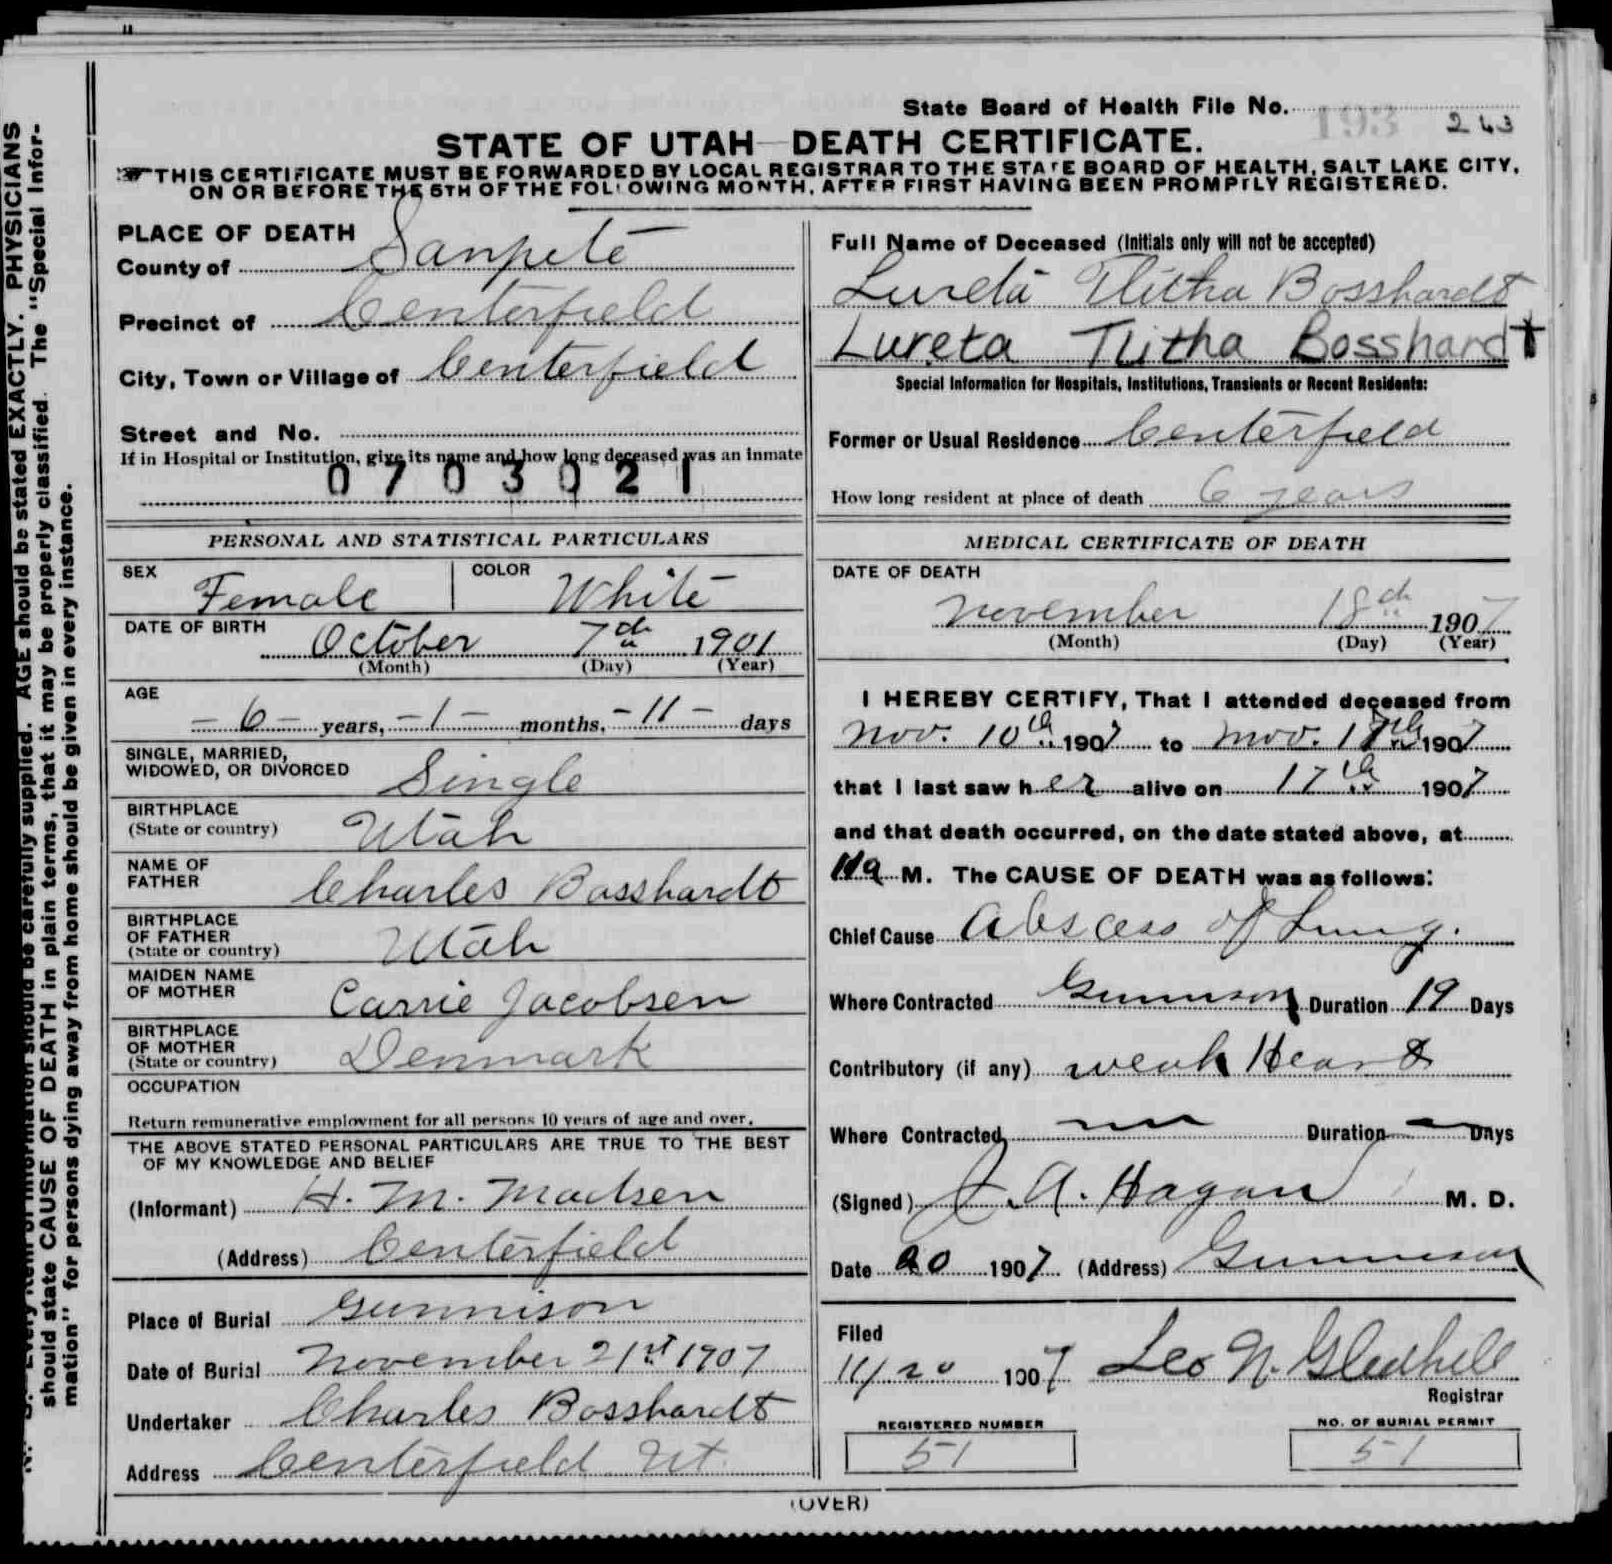 State Board of Health File No. 193 243
STATE OF UTAH DEATH CERTIFICATE.
THIS CERTIFICATE MUST BE FORWARDED BY LOCAL REGISTRAR TO THE STATE BOARD OF HEALTH, SALT LAKE CITY,
ON OR BEFORE THE 5TH OF THE FOLLOWING MONTH, AFTER FIRST HAVING BEEN PROMPTLY REGISTERED.
PLACE OF DEATH
County of Sanpete
Precinct of Centerfield
City, Town or Village of Centerfield
Street and No.
If in Hospital or Institution, give its name and how long deceased was an inmate
0703021
PERSONAL AND STATISTICAL PARTICULARS
SEX Female COLOR White
DATE OF BIRTH October 7th 1901
(Month) (Day) (Year)
AGE
- 6 - years, - 1 - months, - 11 - days
SINGLE, MARRIED,
WIDOWED, OR DIVORCED Single
BIRTHPLACE
(State or country) Utah
NAME OF
FATHER Charles Bosshardt
BIRTHPLACE
OF FATHER
(State or country) Utah
MAIDEN NAME
OF MOTHER Carrie Jacobsen
BIRTHPLACE
OF MOTHER
(State or country) Denmark
OCCUPATION
Return remunerative employment for all persons 10 years of age and over.
THE ABOVE STATED PERSONAL PARTICULARS ARE TRUE TO THE BEST
OF MY KNOWLEDGE AND BELIEF
(Informant) H. M. Madsen
(Address) Centerfield
Place of Burial Gunnison
Date of Burial November 21st 1907
Undertaker Charles Bosshardt
Address Centerfield Ut.
Full Name of Deceased (Initials only will not be accepted)
Lureta Tlitha Bosshardt
Lureta Tlitha Bosshardt
Special Information for Hospitals, Institutions, Transients or Recent Residents:
Former or Usual Residence Centerfield
How long resident at place of death 6 years
MEDICAL CERTIFICATE OF DEATH
DATE OF DEATH
November 18th 1907
(Month) (Day) (Year)
I HEREBY CERTIFY, That I attended deceased from
Nov. 10th 1907 to Nov. 17th 1907
that I last saw her alive on 17th 1907
and that death occurred, on the date stated above, at
11a M. The CAUSE OF DEATH was as follows:
Chief Cause Abscess of Lung.
Where Contracted Gunnison Duration 19 Days
Contributory (if any) weak Heart
Where Contracted Duration Days
(Signed) J. A. Hagan M. D.
Date 20 1907 (Address) Gunnison
Filed
11/20 1907 Leo N. Gledhill
Registrar
REGISTERED NUMBER
51
NO. OF BURIAL PERMIT
51
(OVER)
Every item of information should be carefully supplied. AGE should be stated EXACTLY. PHYSICIANS
should state CAUSE OF DEATH in plain terms, that it may be properly classified. The "Special Infor-
mation" for persons dying away from home should be given in every instance.